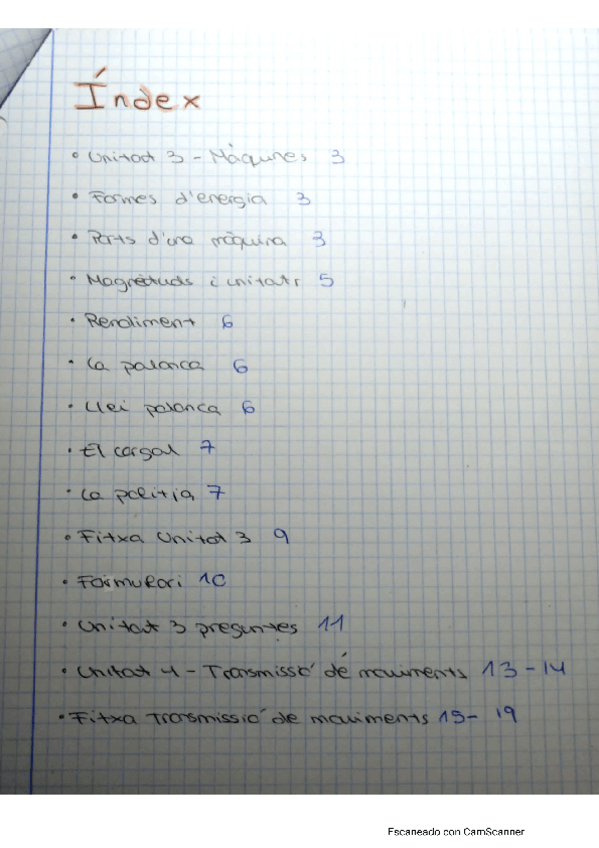 Índex
• Unitat 3 - Màquines 3
• Formes d'energia 3
• Parts d'una màquina 3
• Magnètuds i unitats 5
• Rendiment 6
• La palanca 6
• Llei palanca 6
• El cargol 7
• La politja 7
• Fitxa Unitat 3 9
• Formulari 10
• Unitat 3 preguntes 11
• Unitat 4 - Transmissió de moviments 13 - 14
• Fitxa Transmissió de moviments 15 - 19
Escaneado con CamScanner